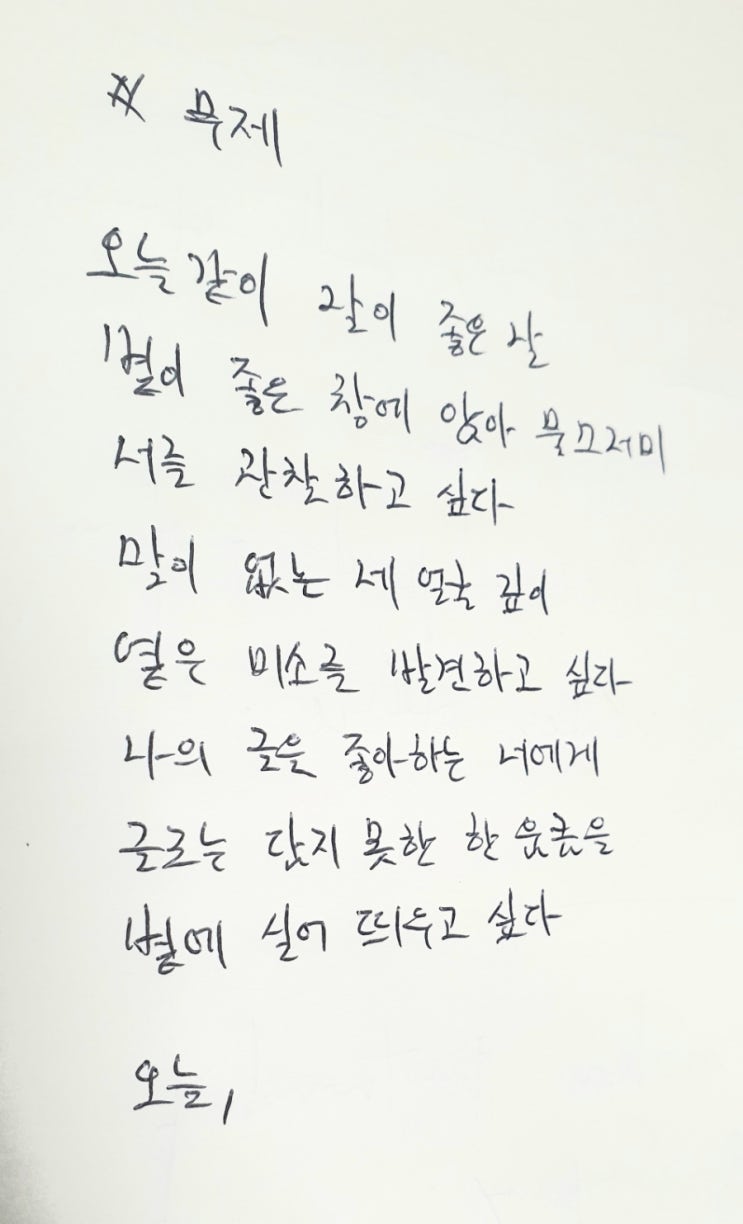 ※ 무제
오늘 같이 같이 좋은 날
볕이 좋은 창에 앉아 물끄러미
너를 관찰하고 싶다
말이 없는 네 얼굴 깊이
옅은 미소를 발견하고 싶다
나의 글을 좋아하는 너에게
글로는 담지 못한 한 움큼을
볕에 실어 띄우고 싶다
오늘,